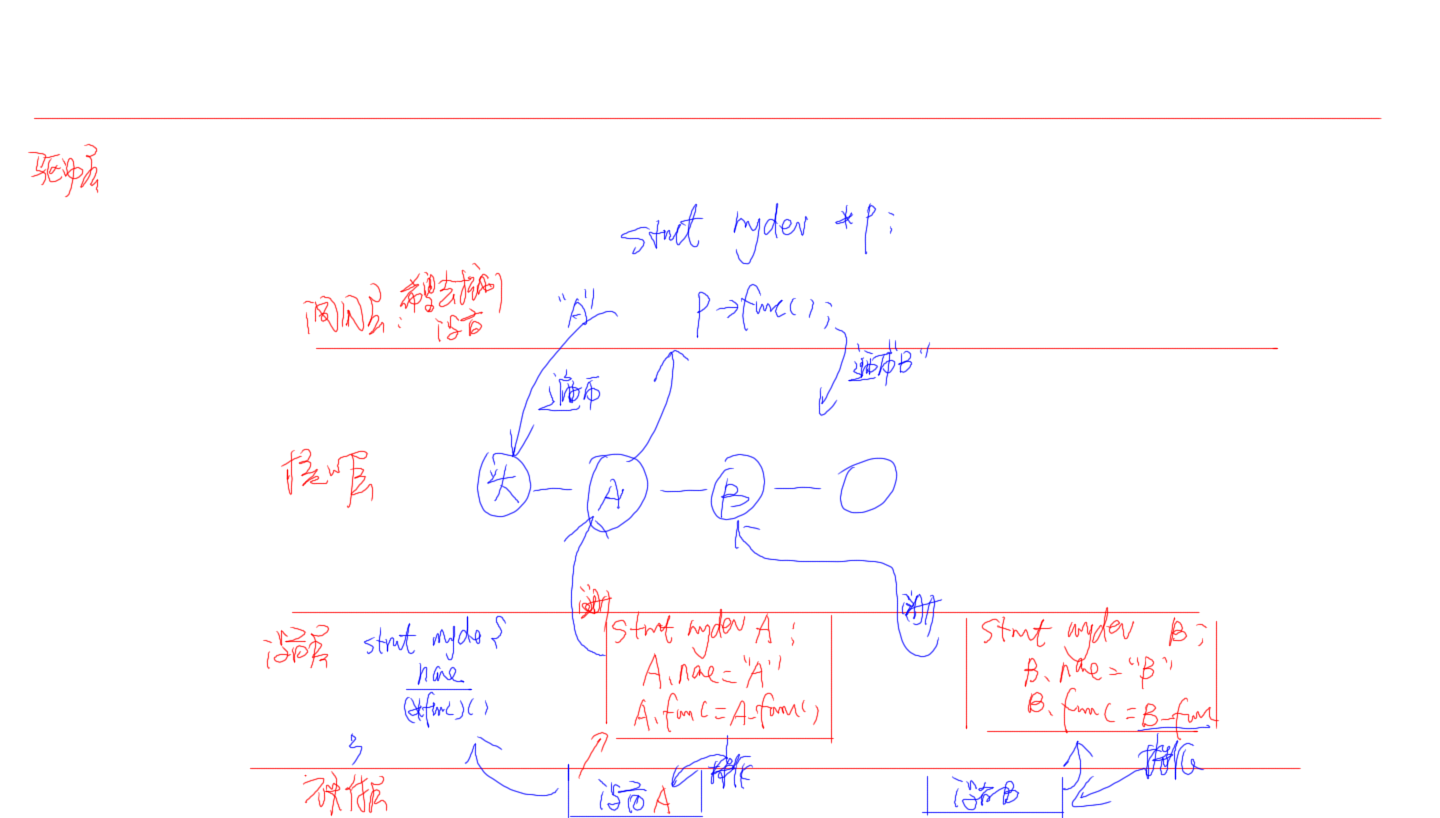 驱动层
struct mydev *p;
调用层: 希望去控制
设备
"A"
p->func();
遍历
遍历"B"
核心层
头
A
B
注册
注册
设备层
struct mydev {
name
(*func)()
}
struct mydev A;
A.name="A"
A.func=A-func()
struct mydev B;
B.name="B"
B.func=B-func
操作
操作
硬件层
设备A
设备B